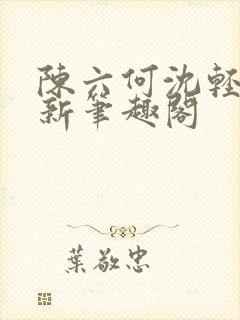 陳六何沈輕
新筆趣閣
葉敬忠